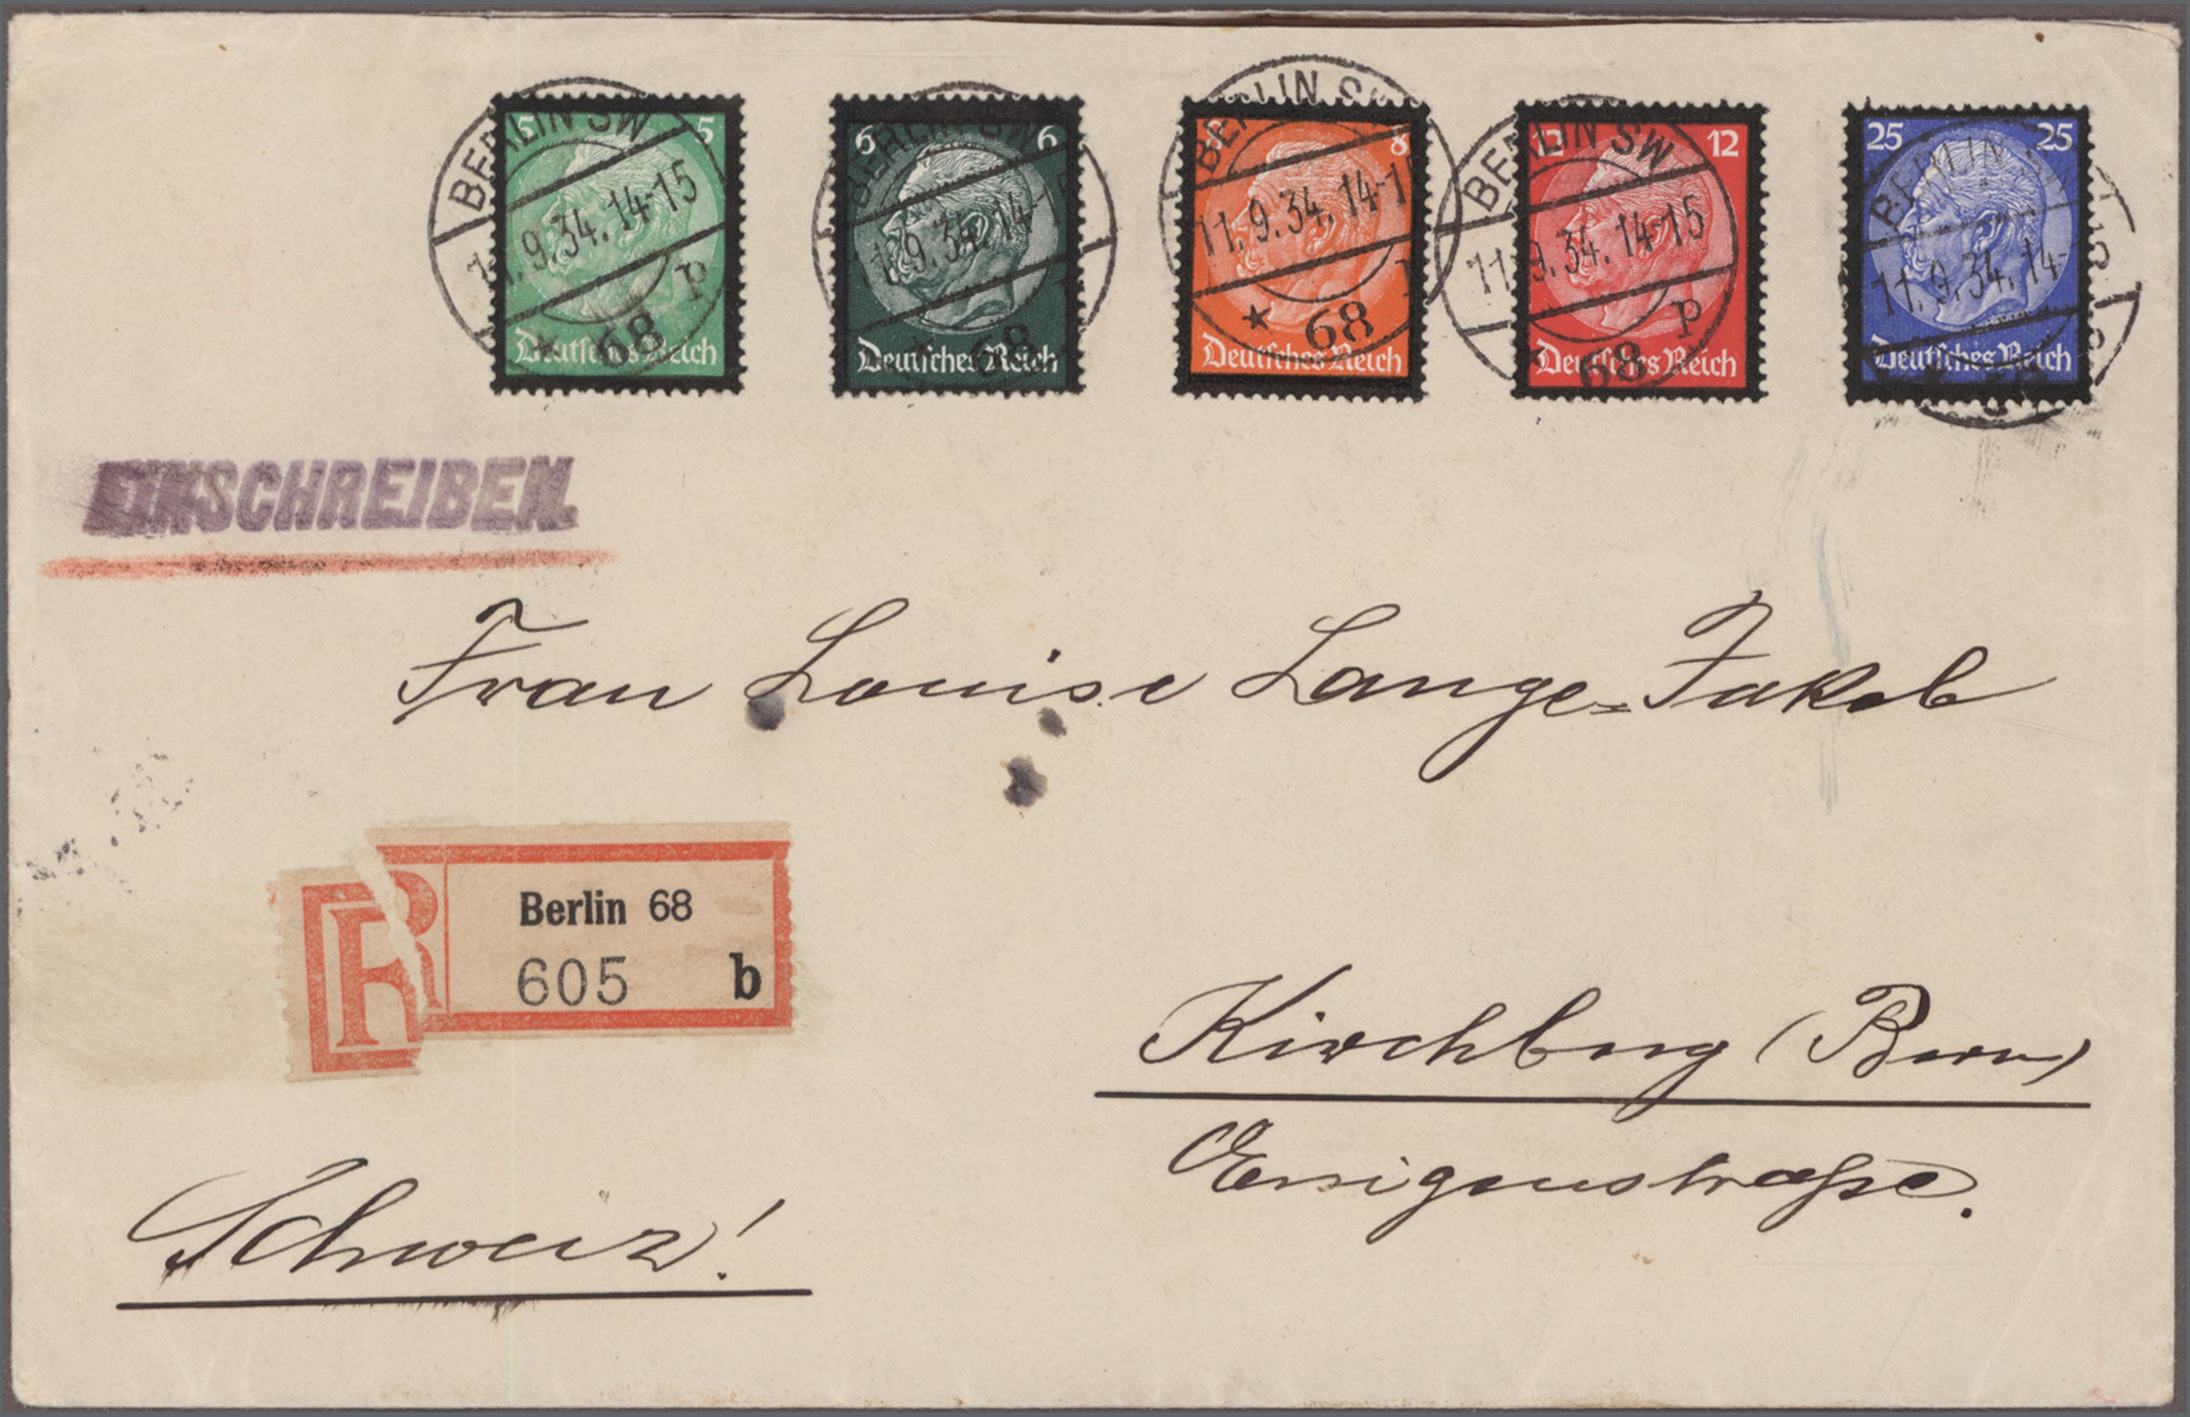 5 5 6 6 8 12 12 25 25
BERLIN SW 11.9.34.14-15 * 68 p
BERLIN SW 11.9.34.14-1 68
BERLIN SW 11.9.34.14-1 * 68
BERLIN SW 11.9.34.14-15 68 p
BERLIN 11.9.34.14-
Deutsches Reich Deutsches Reich Deutsches Reich Deutsches Reich Deutsches Reich
EINSCHREIBEN.
Frau Louise Lange=Jakob
R Berlin 68
605 b
Kirchberg (Bern)
Ersigenstraße.
Schweiz!